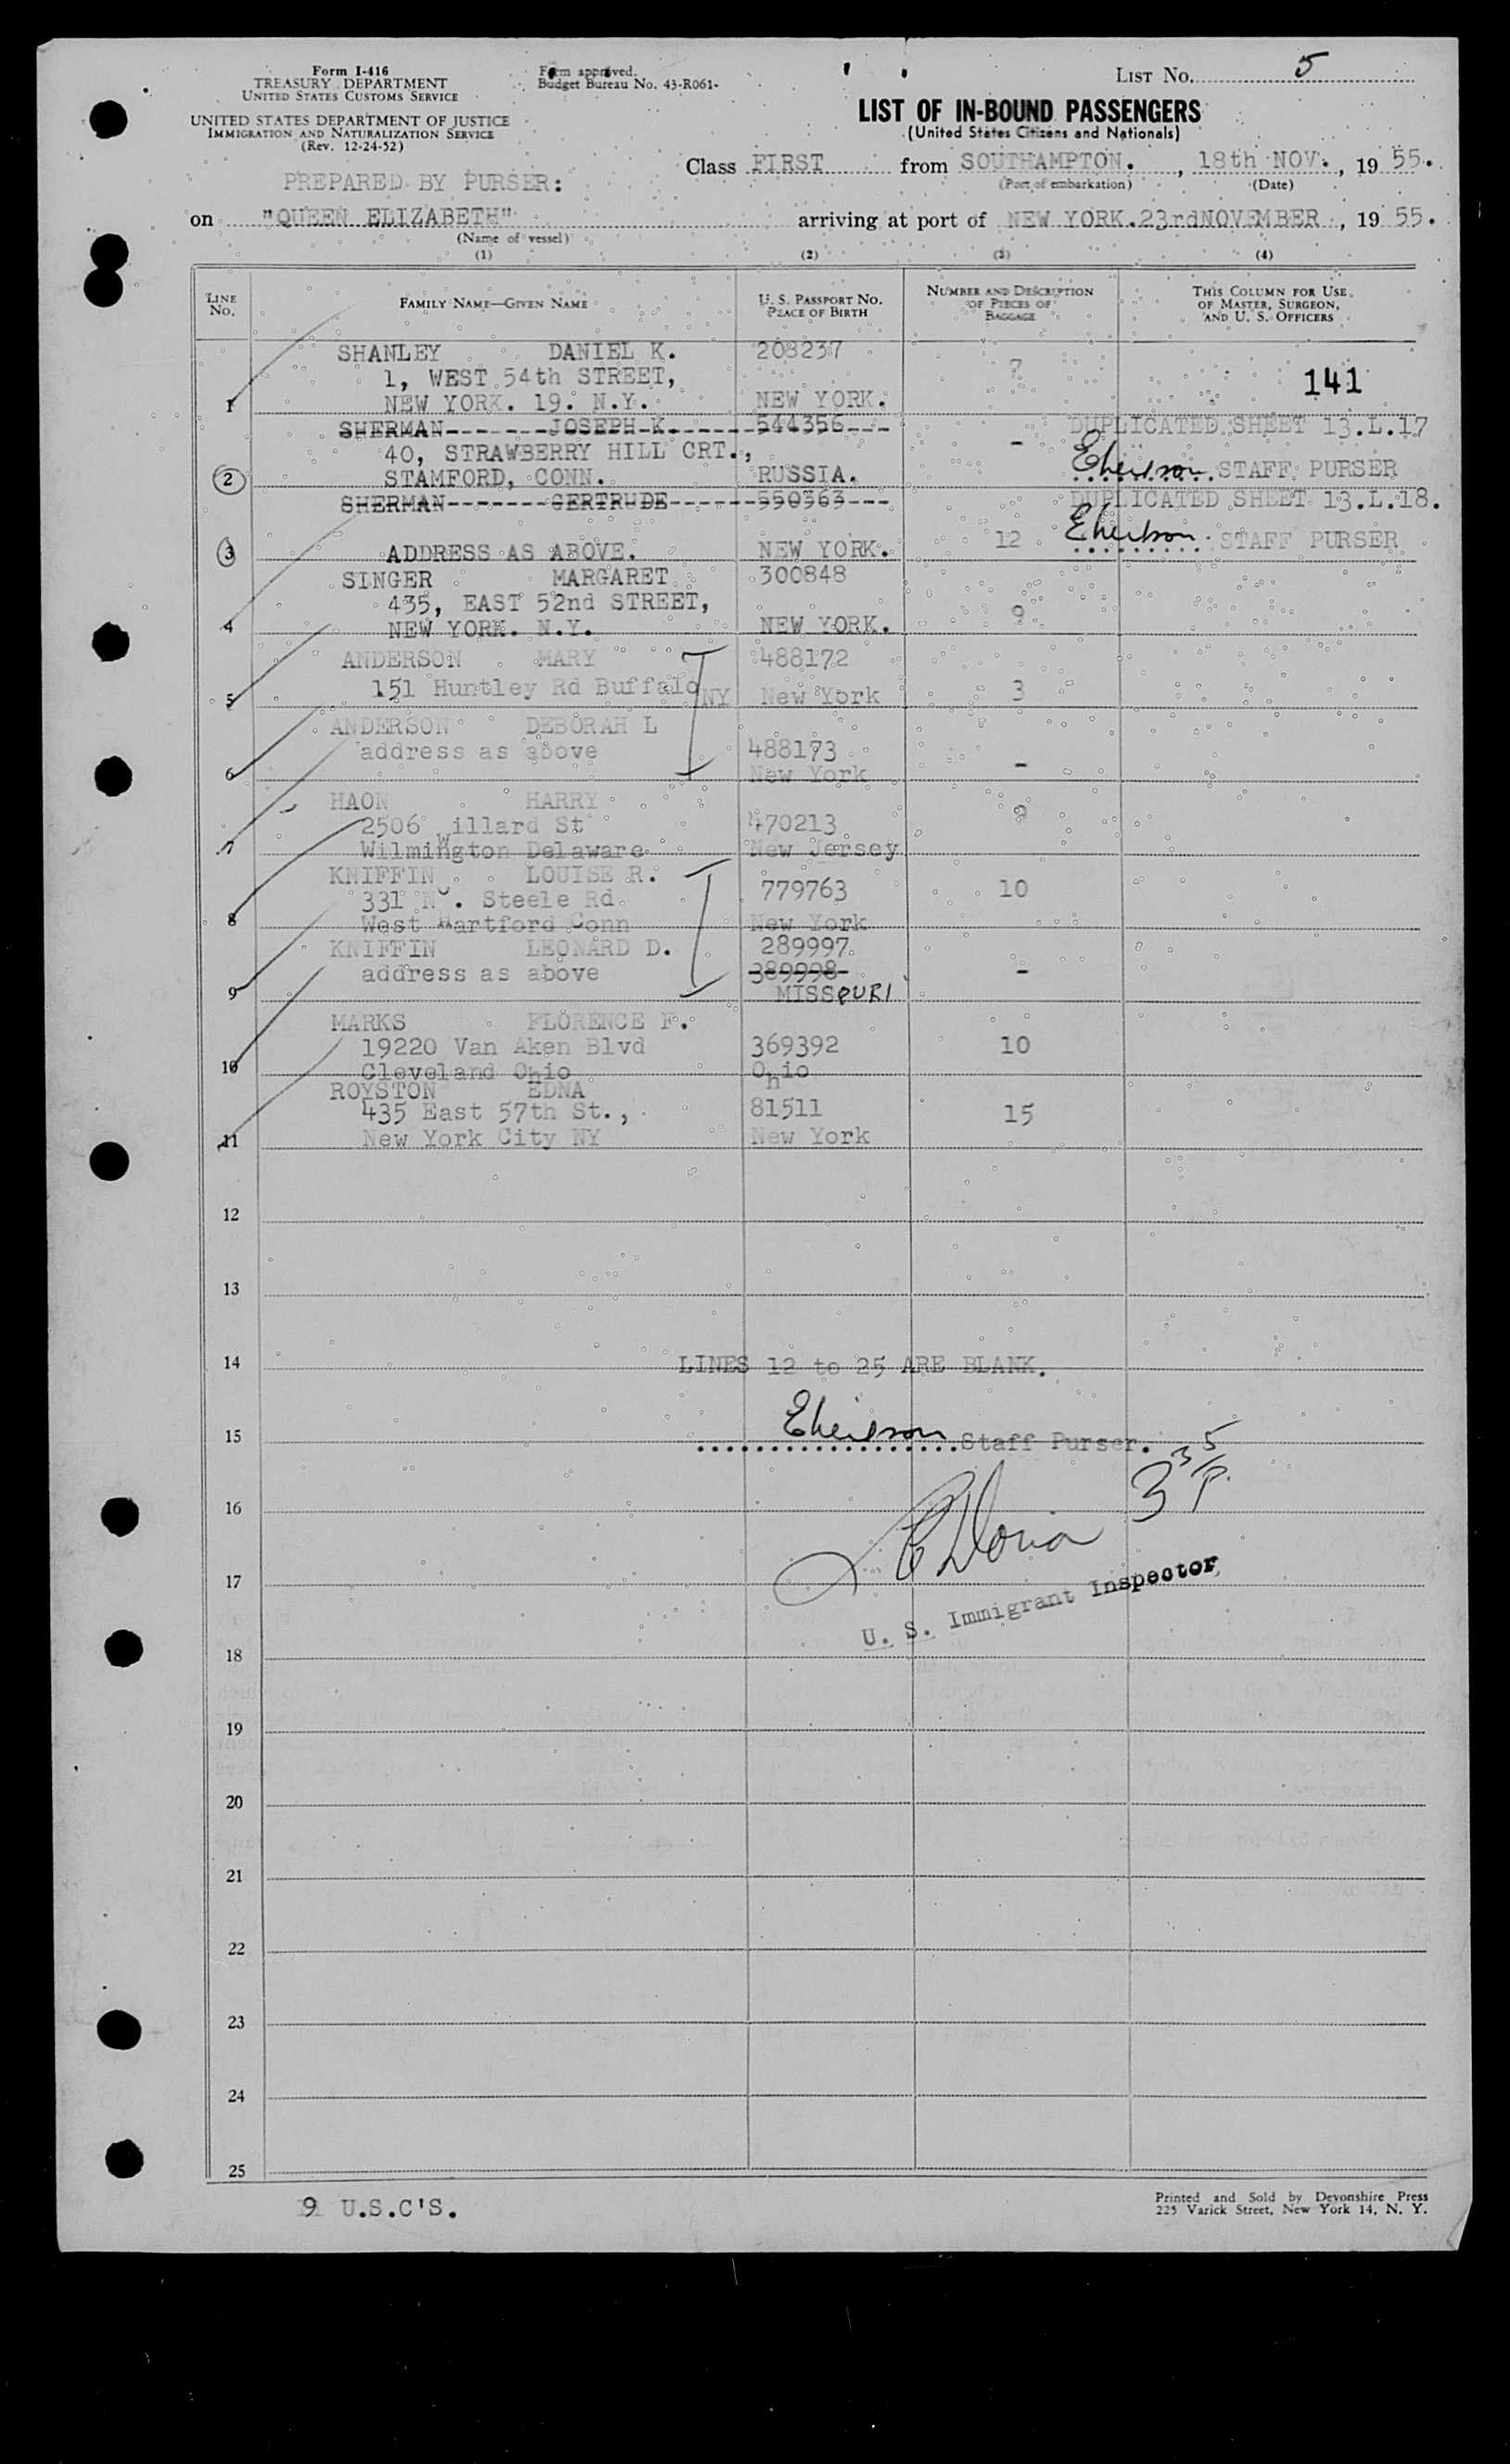 Form I-416
TREASURY DEPARTMENT
UNITED STATES CUSTOMS SERVICE
UNITED STATES DEPARTMENT OF JUSTICE
IMMIGRATION AND NATURALIZATION SERVICE
(Rev. 12-24-52)
Form approved.
Budget Bureau No. 43-R061-
LIST NO. 5
LIST OF IN-BOUND PASSENGERS
(United States Citizens and Nationals)
PREPARED BY PURSER:
Class FIRST from SOUTHAMPTON. , 18th NOV. , 19 55.
(Port of embarkation) (Date)
on "QUEEN ELIZABETH" arriving at port of NEW YORK. 23rd NOVEMBER , 19 55.
(Name of vessel)
(1) (2) (3) (4)
LINE NO. FAMILY NAME—GIVEN NAME U. S. PASSPORT NO. PLACE OF BIRTH NUMBER AND DESCRIPTION OF PIECES OF BAGGAGE THIS COLUMN FOR USE OF MASTER, SURGEON, AND U. S. OFFICERS
SHANLEY DANIEL K. 208237
1, WEST 54th STREET, 7 141
1 NEW YORK. 19. N.Y. NEW YORK.
SHERMAN-------JOSEPH K.------544356--- DUPLICATED SHEET 13.L.17
40, STRAWBERRY HILL CRT., -
2 STAMFORD, CONN. RUSSIA. STAFF PURSER
SHERMAN-------GERTRUDE------550363--- DUPLICATED SHEET 13.L.18.
3 ADDRESS AS ABOVE. NEW YORK. 12 STAFF PURSER
SINGER MARGARET 300848
435, EAST 52nd STREET, 9
4 NEW YORK. N.Y. NEW YORK.
ANDERSON MARY 488172
5 151 Huntley Rd Buffalo NY New York 3
ANDERSON DEBORAH L
address as above 488173
6 New York -
HAON HARRY 9
2506 Willard St 470213
7 Wilmington Delaware New Jersey
KNIFFIN LOUISE R.
331 N . Steele Rd 779763 10
8 West Hartford Conn New York
KNIFFIN LEONARD D. 289997
address as above 389998 -
9 MISSOURI
MARKS FLORENCE F.
19220 Van Aken Blvd 369392 10
10 Cleveland Ohio Ohio
ROYSTON EDNA
435 East 57th St., 81511 15
11 New York City NY New York
12
13
14 LINES 12 to 25 ARE BLANK.
15 Staff Purser.
16
17
U. S. Immigrant Inspector
18
19
20
21
22
23
24
25
9 U.S.C'S.
Printed and Sold by Devonshire Press
225 Varick Street, New York 14, N. Y.